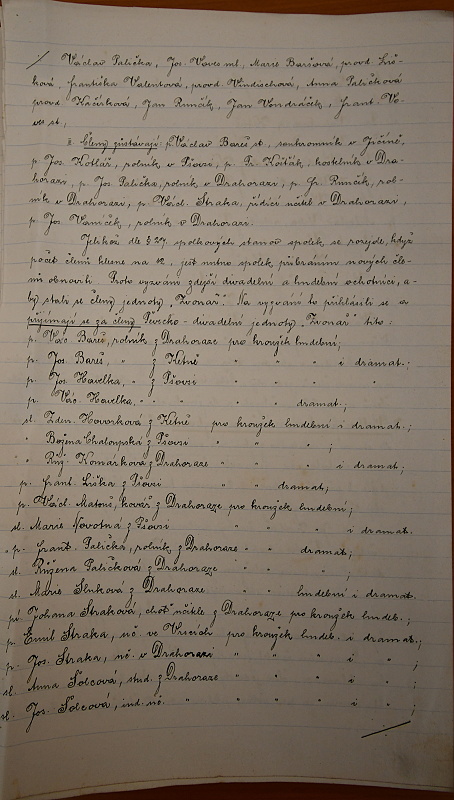 Václav Palička, Jos. Voves ml., Marie Baršová, provd.
ková, Františka Valentová, provd. Vindischová, Anna Paličková
provd. Kačírková, Jan Runčík, Jan Vondráček, Frant. Vo-
ves st.,
Členy zůstávají: p. Václav Bareš st., soukromník v Jičíně,
p. Jos. Kotlář, rolník v Pšovsi, p. Fr. Košťák, kostelník v Dra-
horazi, p. Jos. Palička, rolník v Drahorazi, p. Fr. Runčík, rol-
ník v Drahorazi, p. Václ. Straka, řídící učitel v Drahorazi,
p. Jos. Vaníček, rolník v Drahorazi.
Jelikož dle § 27 spolkových stanov spolek se rozejde, když
počet členů klesne na 12, jest nutno spolek přibráním nových čle-
nů obnoviti. Proto vyzváni zdejší divadelní a hudební ochotníci, a-
by stali se členy jednoty „Zvonař“. Na vyzvání to přihlásili se a
přijímají se za členy Pěvecko-divadelní jednoty „Zvonař“ tito:
p. Vác. Bareš, rolník z Drahoraze pro kroužek hudební;
p. Jos. Bareš, " z Ketně " " " i dramat.;
p. Jos. Havelka, " z Pšovsi " " " "
p. Vác. Havelka, " " " " dramat.;
sl. Zden. Hovorková z Ketně pro kroužek hudební i dramat.;
" Božena Chaloupská z Pšovsi " " " ;
" Růž. Komárková z Drahoraze " " " i dramat;
p. Frant. Liška z Pšovsi " " dramat;
p. Václ. Matouš, kovář z Drahoraze pro kroužek hudební;
sl. Marie Novotná z Pšovsi " " " i dramat.
p. Frant. Palička, rolník z Drahoraze " " dramat;
sl. Růžena Paličková z Drahoraze " " " ;
sl. Marie z Drahoraze " " hudební i dramat.
pí Johana Straková, choť učitele z Drahoraze pro kroužek hudeb.;
p. Emil Straka, uč. ve pro kroužek hudeb. i dramat.;
p. Jos. Straka, uč. v Drahorazi " " " i " ;
sl. Anna Šolcová, stud. z Drahoraze " " " i " ;
sl. Jos. Šolcová, ind. uč. " " " " i " ;